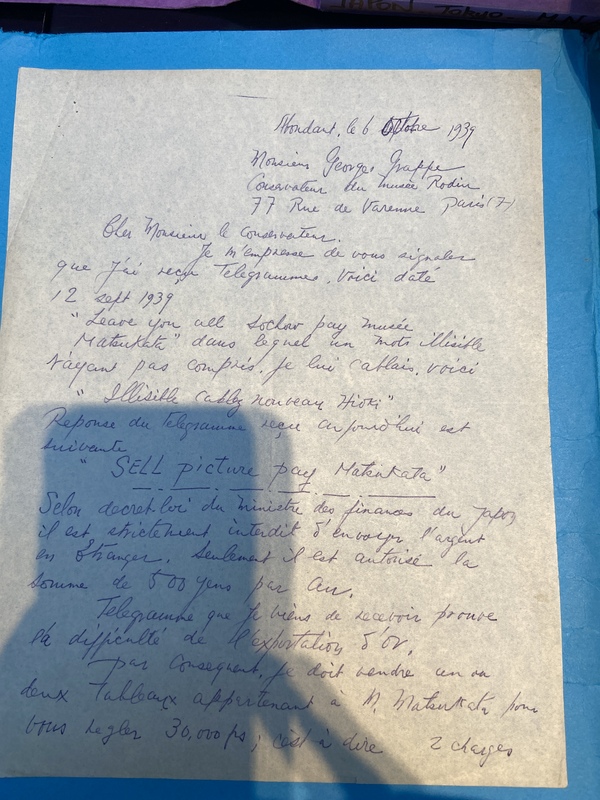 JAPON Tokyo. M.N
Abondant, le 6 Octobre 1939
Monsieur Georges Grappe
Conservateur du musée Rodin
77 Rue de Varenne Paris (7)
Cher Monsieur le conservateur.
Je m'empresse de vous signaler
que j'ai reçu Telegrammes, voici daté
12 sept 1939
"Leave you all Sochow pay musée
Matsukata" dans lequel un mots illisible
n'ayant pas compris, je lui cablais, voici
"Illisible cablez nouveau Hioki"
Reponse du Telegramme reçu aujourd'hui est
suivante
"SELL picture pay Matsukata"
Selon decret-loi du ministre des finances du Japon
il est strictement interdit d'envoyer l'argent
en Etranger. Seulement il est autorisé la
somme de 500 yens par an.
Telegramme que je viens de recevoir prouve
la difficulté de l'exportation d'or.
par consequent, je doit vendre un ou
deux Tableaux appartenant à M. Matsukata pour
vous regler 30,000 frs ; c'est à dire 2 charges